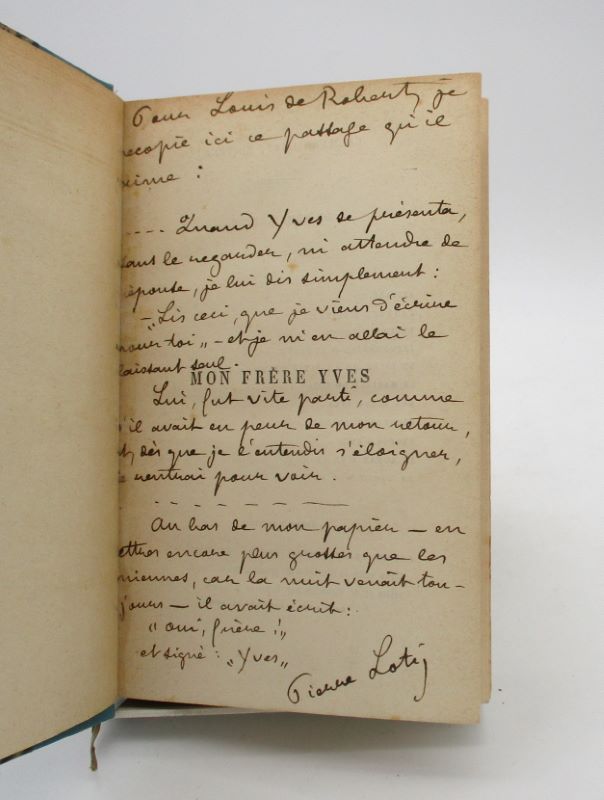 Pour Louis de Robert, je
recopie ici ce passage qu'il
aime :
.... Quand Yves se présenta,
sans le regarder, ni attendre de
réponse, je lui dis simplement :
– „Lis ceci, que je viens d'écrire
pour toi„ – et je m'en allai le
laissant seul.
MON FRÈRE YVES
Lui, fut vite parti, comme
s'il avait eu peur de mon retour,
et, dès que je l'entendis s'éloigner,
je rentrai pour voir.
Au bas de mon papier – en
lettres encore plus grosses que les
miennes, car la nuit venait tou-
jours – il avait écrit :
„oui, frère !„
et signé : „Yves„
Pierre Loti